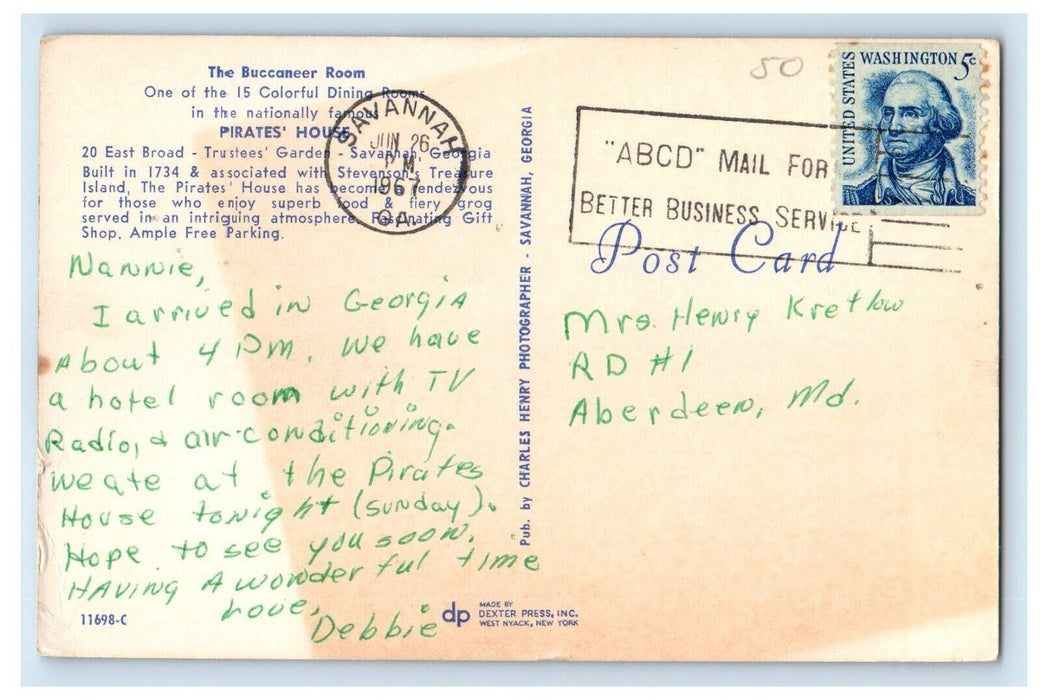 The Buccaneer Room
One of the 15 Colorful Dining Rooms
in the nationally famous
PIRATES' HOUSE
20 East Broad - Trustees' Garden - Savannah, Georgia
Built in 1734 & associated with Stevenson's Treasure
Island, The Pirates' House has become a rendezvous
for those who enjoy superb food & fiery grog
served in an intriguing atmosphere. Fascinating Gift
Shop. Ample Free Parking.
SAVANNAH
JUN 26
PM
1967
GA.
Nannie,
I arrived in Georgia
About 4 PM. We have
a hotel room with TV
Radio, & air-conditioning.
we ate at the Pirates
House tonight (Sunday).
Hope to see you soon.
HAVING A wonderful time
Love,
Debbie
11698-C
Pub. by CHARLES HENRY PHOTOGRAPHER - SAVANNAH, GEORGIA
dp
MADE BY
DEXTER PRESS, INC.
WEST NYACK, NEW YORK
50
UNITED STATES
WASHINGTON 5c
"ABCD" MAIL FOR
BETTER BUSINESS SERVICE
Post Card
Mrs. Henry Kretlow
RD #1
Aberdeen, Md.